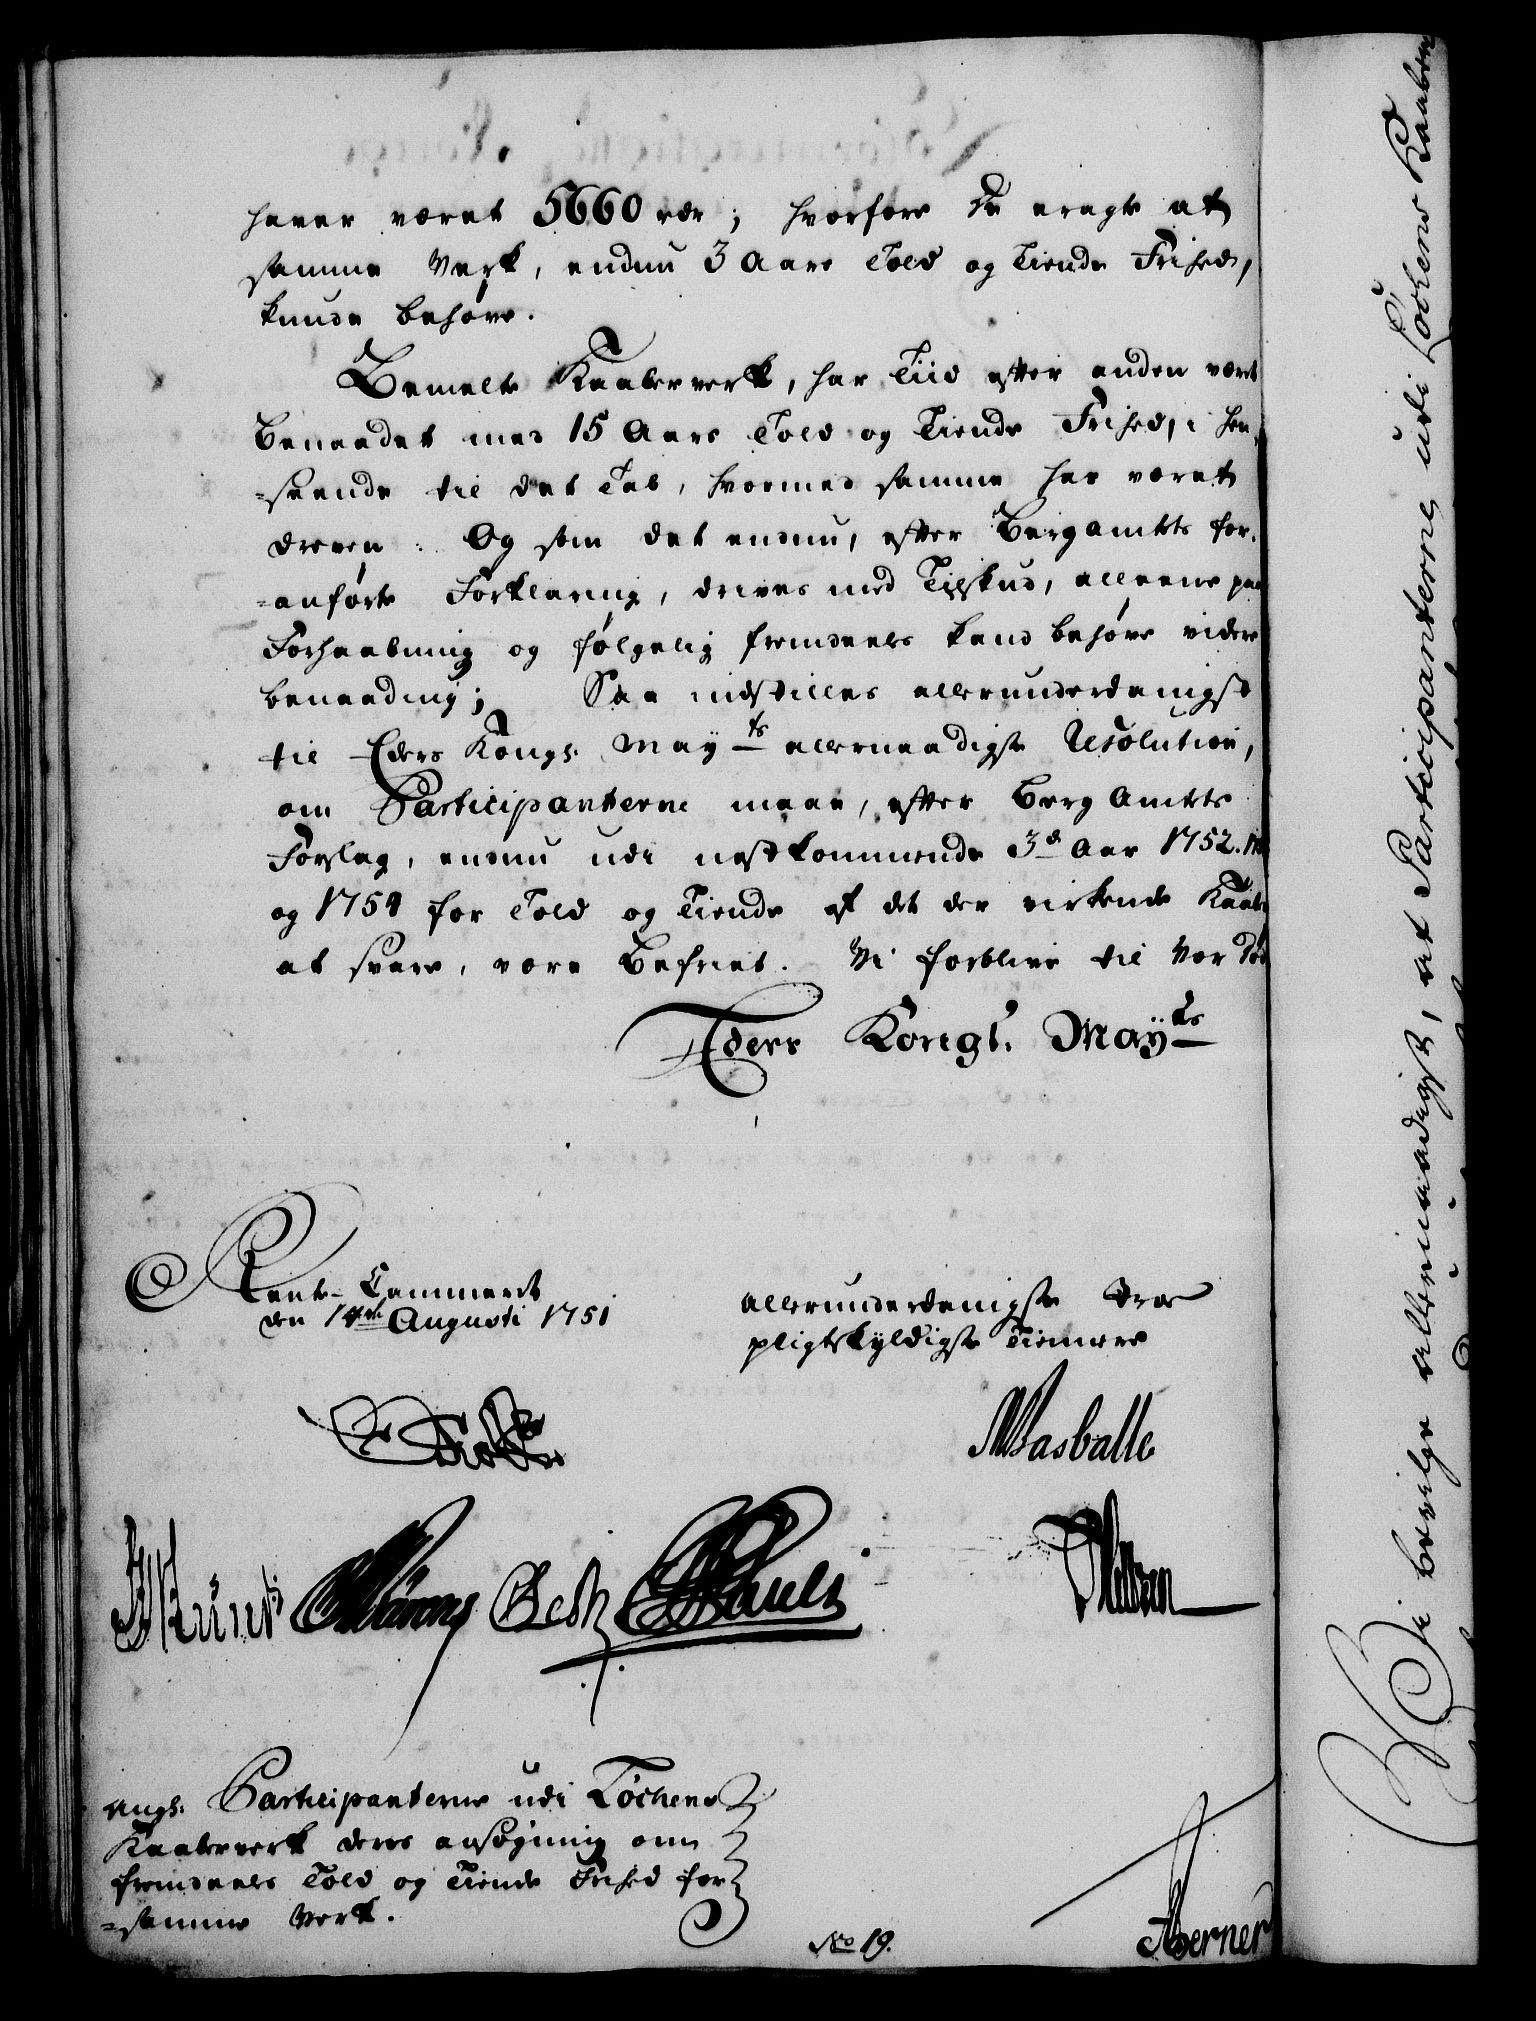 haver været 5660 rdr; hvorfore De eragte at
samme Verk, endnu 3 Aars Told og Tiende Frihed,
kunde behøve.
Bemelte Kaaberverk, har Tiid efter anden været
Benaadet med 15 Aars Told og Tiende Frihed, i hen-
=seende til det Tab, hvormed samme har været
dreven: Og som det endnu, efter Bergamtets for-
=anførte Forklaring, drives med Tilskud, alleene paa
Forhaabning og følgelig fremdeeles kand behøve videre
benaading; Saa indstilles allerunderdanigst
til Eders Kongl. May.ts allernaadigste Resolution,
om Participanterne maae, efter Berg Amtets
Forslag, endnu udi nestkommende 3de Aar 1752.
og 1754 for Told og Tiende af det der virkende Kaaber
at svare, være Befriet. Vi forblive til Vor Død
Eders Kongl. May.ts
Rente-Cammeret
den 14de Augusti 1751
allerunderdanigste troe
pligtskyldigste Tienere
Masballe
Pauli
ang. Participanterne udi Løchens
Kaaberverk deres ansøgning om
fremdeeles Told og Tiende Frihed for
=samme Verk.
No 19.
Berner
Vi bevilge allernaadigst, at Participanterne udi Løchens Kaaber